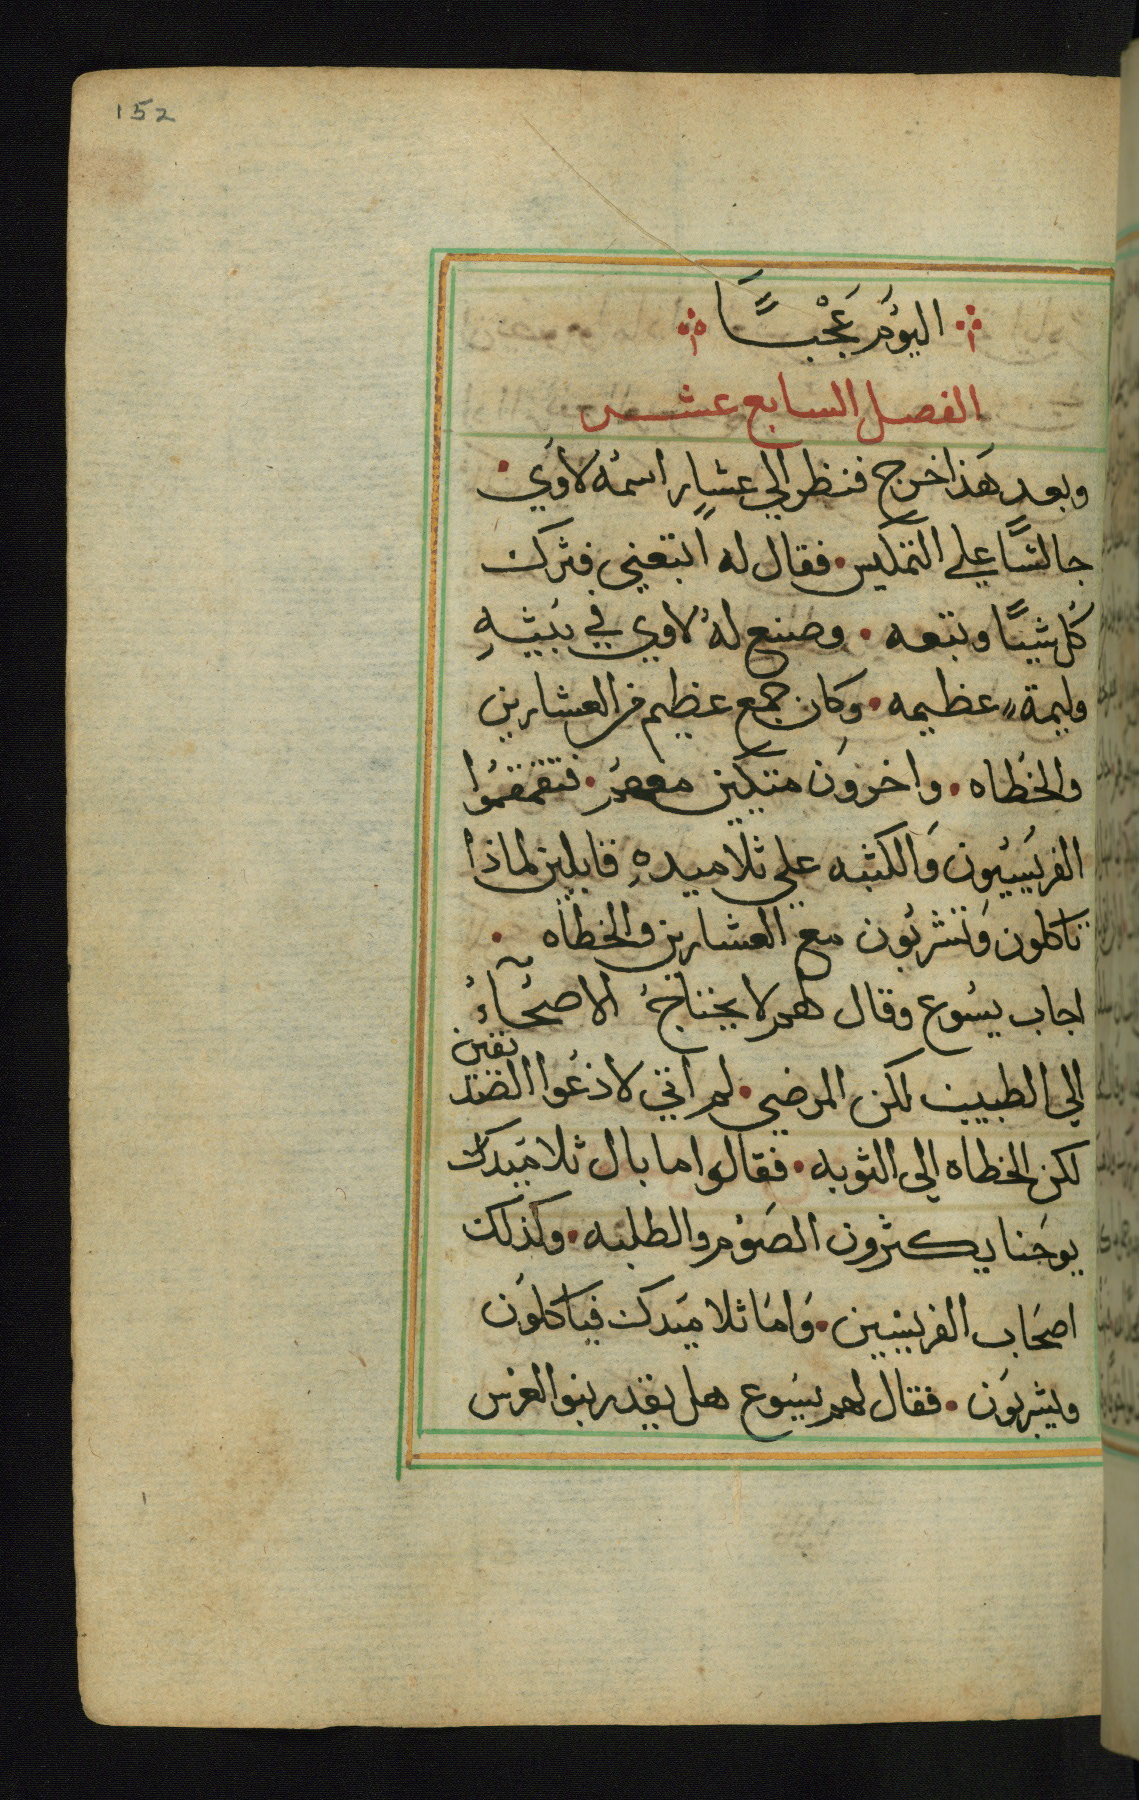 152
اليَوْمَ عَجْبًا
الفصل السابع عشر
وبعد هَذا خرج فنظر الي عشارٍ اسمُه لاوي
جالسًا علي التمكيس فقال له اتبعني فترك
كُل شيًا وتبعه وصنع لهُ لاوي في بَيتهِ
وليمةً عظيمه وكان جمع عظيم من العشارين
والخطاه واخروَن متكين معهمُ فتقمقمُوا
الفريسيون وَالكتبه علي تلاميدهِ قايلين لماذا
تاكلون وَتشربُون مع العشارين والخطاه
اجاب يسُوع وقال لهم لا يحتاجُ الاصحآءُ
الي الطبيب لكن المرضي لم اتي لادعُوا الصديقين
لكن الخطاه الي التوبه فقالوا ما بال تلاميدك
يوحَنا يكثرون الصَوم والطلبه وكذلك
اصحَاب الفريسيين وَامَا تلاميَدك فياكلوَن
ويشربوَن فقال لهم يسَوع هل يقدر بنوا العرس